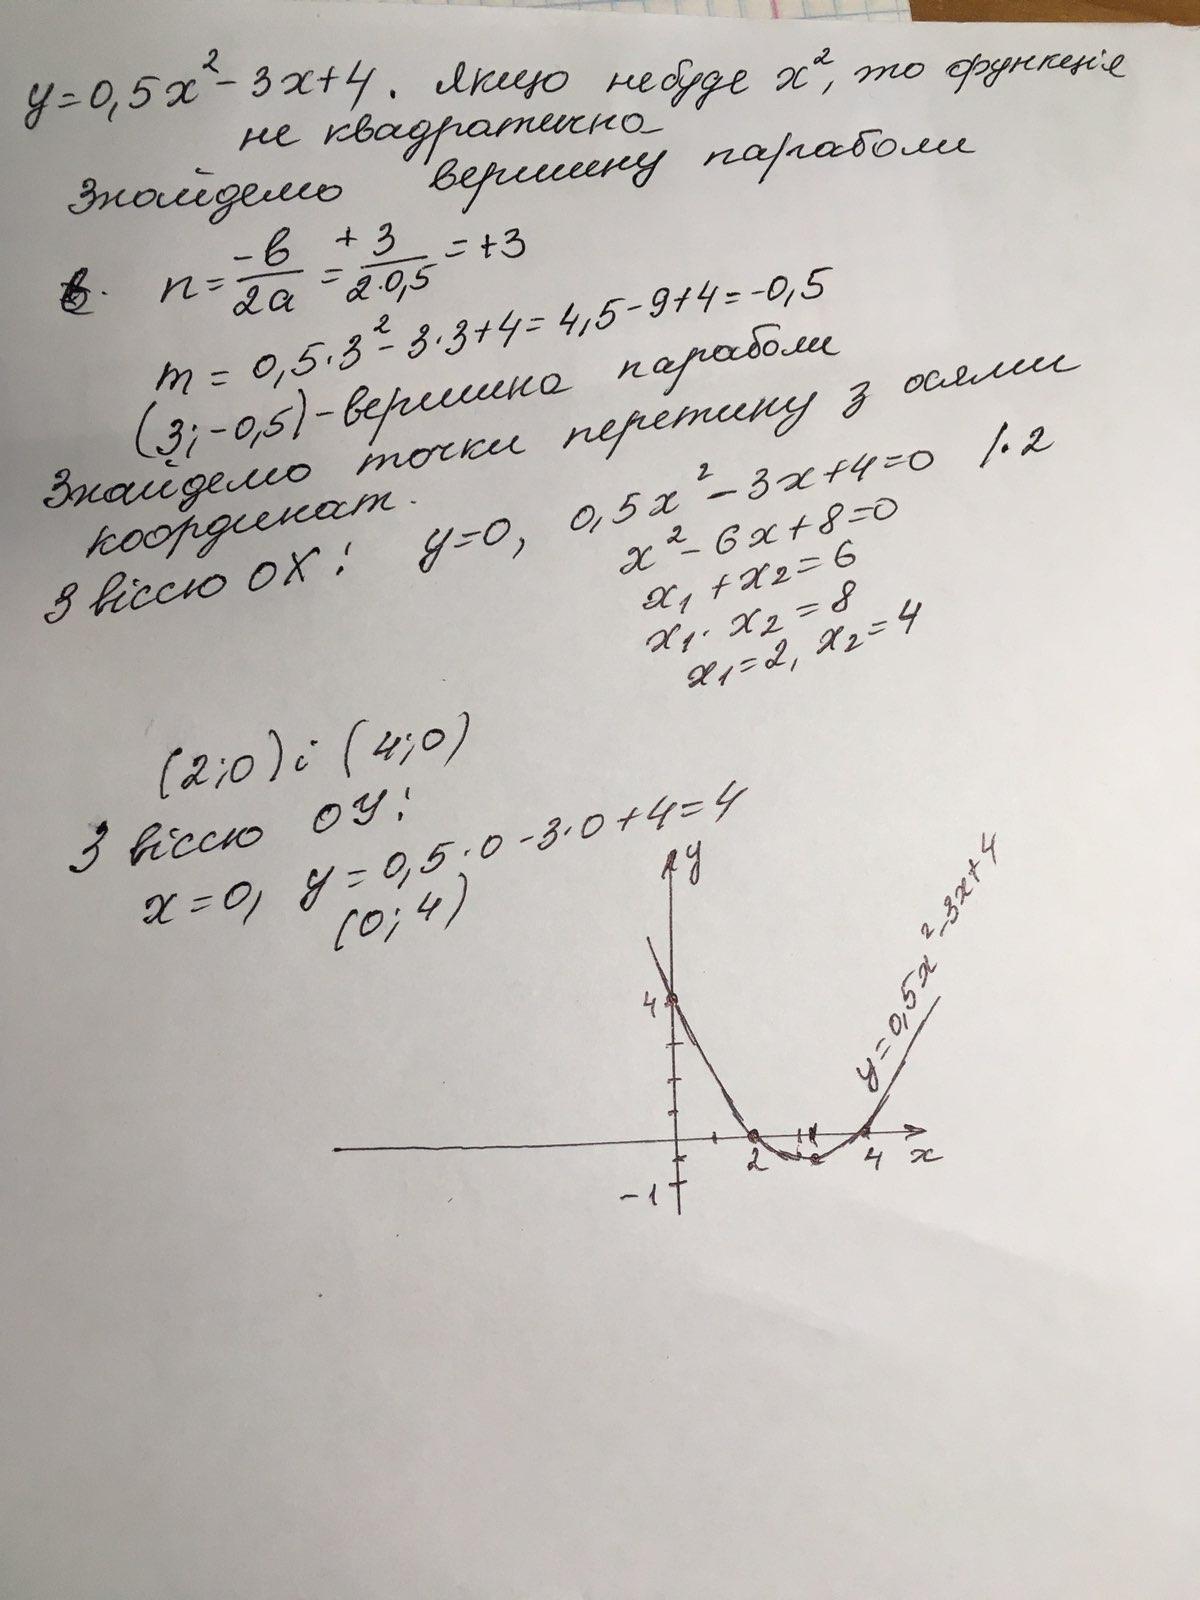 y=0,5x²-3x+4. Якщо небуде x², то функція
не квадратична
Знайдемо вершину параболи
n = -b/2a = +3/2·0,5 = +3
m = 0,5·3²-3·3+4 = 4,5-9+4 = -0,5
(3; -0,5) - вершина параболи
Знайдемо точки перетину з осями
координат.
З віссю OX: y=0, 0,5x²-3x+4=0 |·2
x²-6x+8=0
x₁+x₂=6
x₁·x₂=8
x₁=2, x₂=4
(2;0) і (4;0)
З віссю OY:
x=0, y=0,5·0-3·0+4=4
(0;4)
y
y=0,5x²-3x+4
4
2
4
x
-1